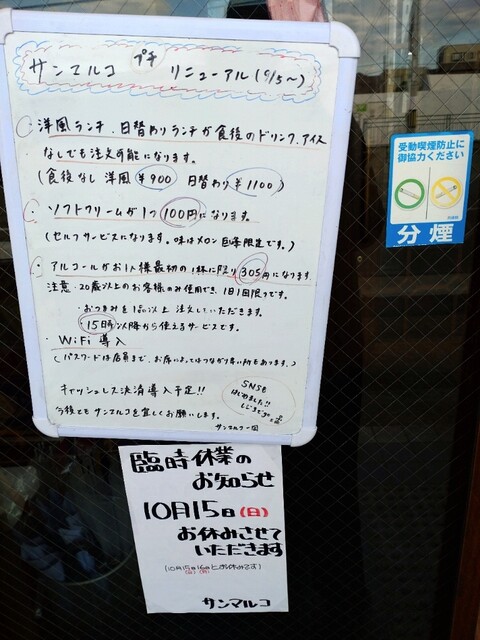 サンマルコ プチ リニューアル(9/5〜)
洋風ランチ、日替わりランチが食後のドリンク、アイス
なしでも注文可能になります。
(食後なし 洋風 ¥900 日替わり ¥1100)
ソフトクリームが1つ100円になります。
(セルフサービスになります。味はメロン 巨峰限定です。)
アルコールがお1人様最初の1杯に限り305円になります
注意・20歳以上のお客様のみ使用でき、1日1回限りです。
・おつまみを1品以上 注文していただきます。
・15時以降から使えるサービスです。
・WiFi 導入
(パスワードは店員まで、お席によってはつながり辛い所もあります。)
キャッシュレス決済導入予定!!
今後ともサンマルコを宜しくお願いします。
サンマルコ一同
SNSを
はじめました!!
受動喫煙防止に
御協力ください
分煙
臨時休業の
お知らせ
10月15日(日)
お休みさせて
いただきます
(10月15日16日とお休みです)
(日)(月)
サンマルコ